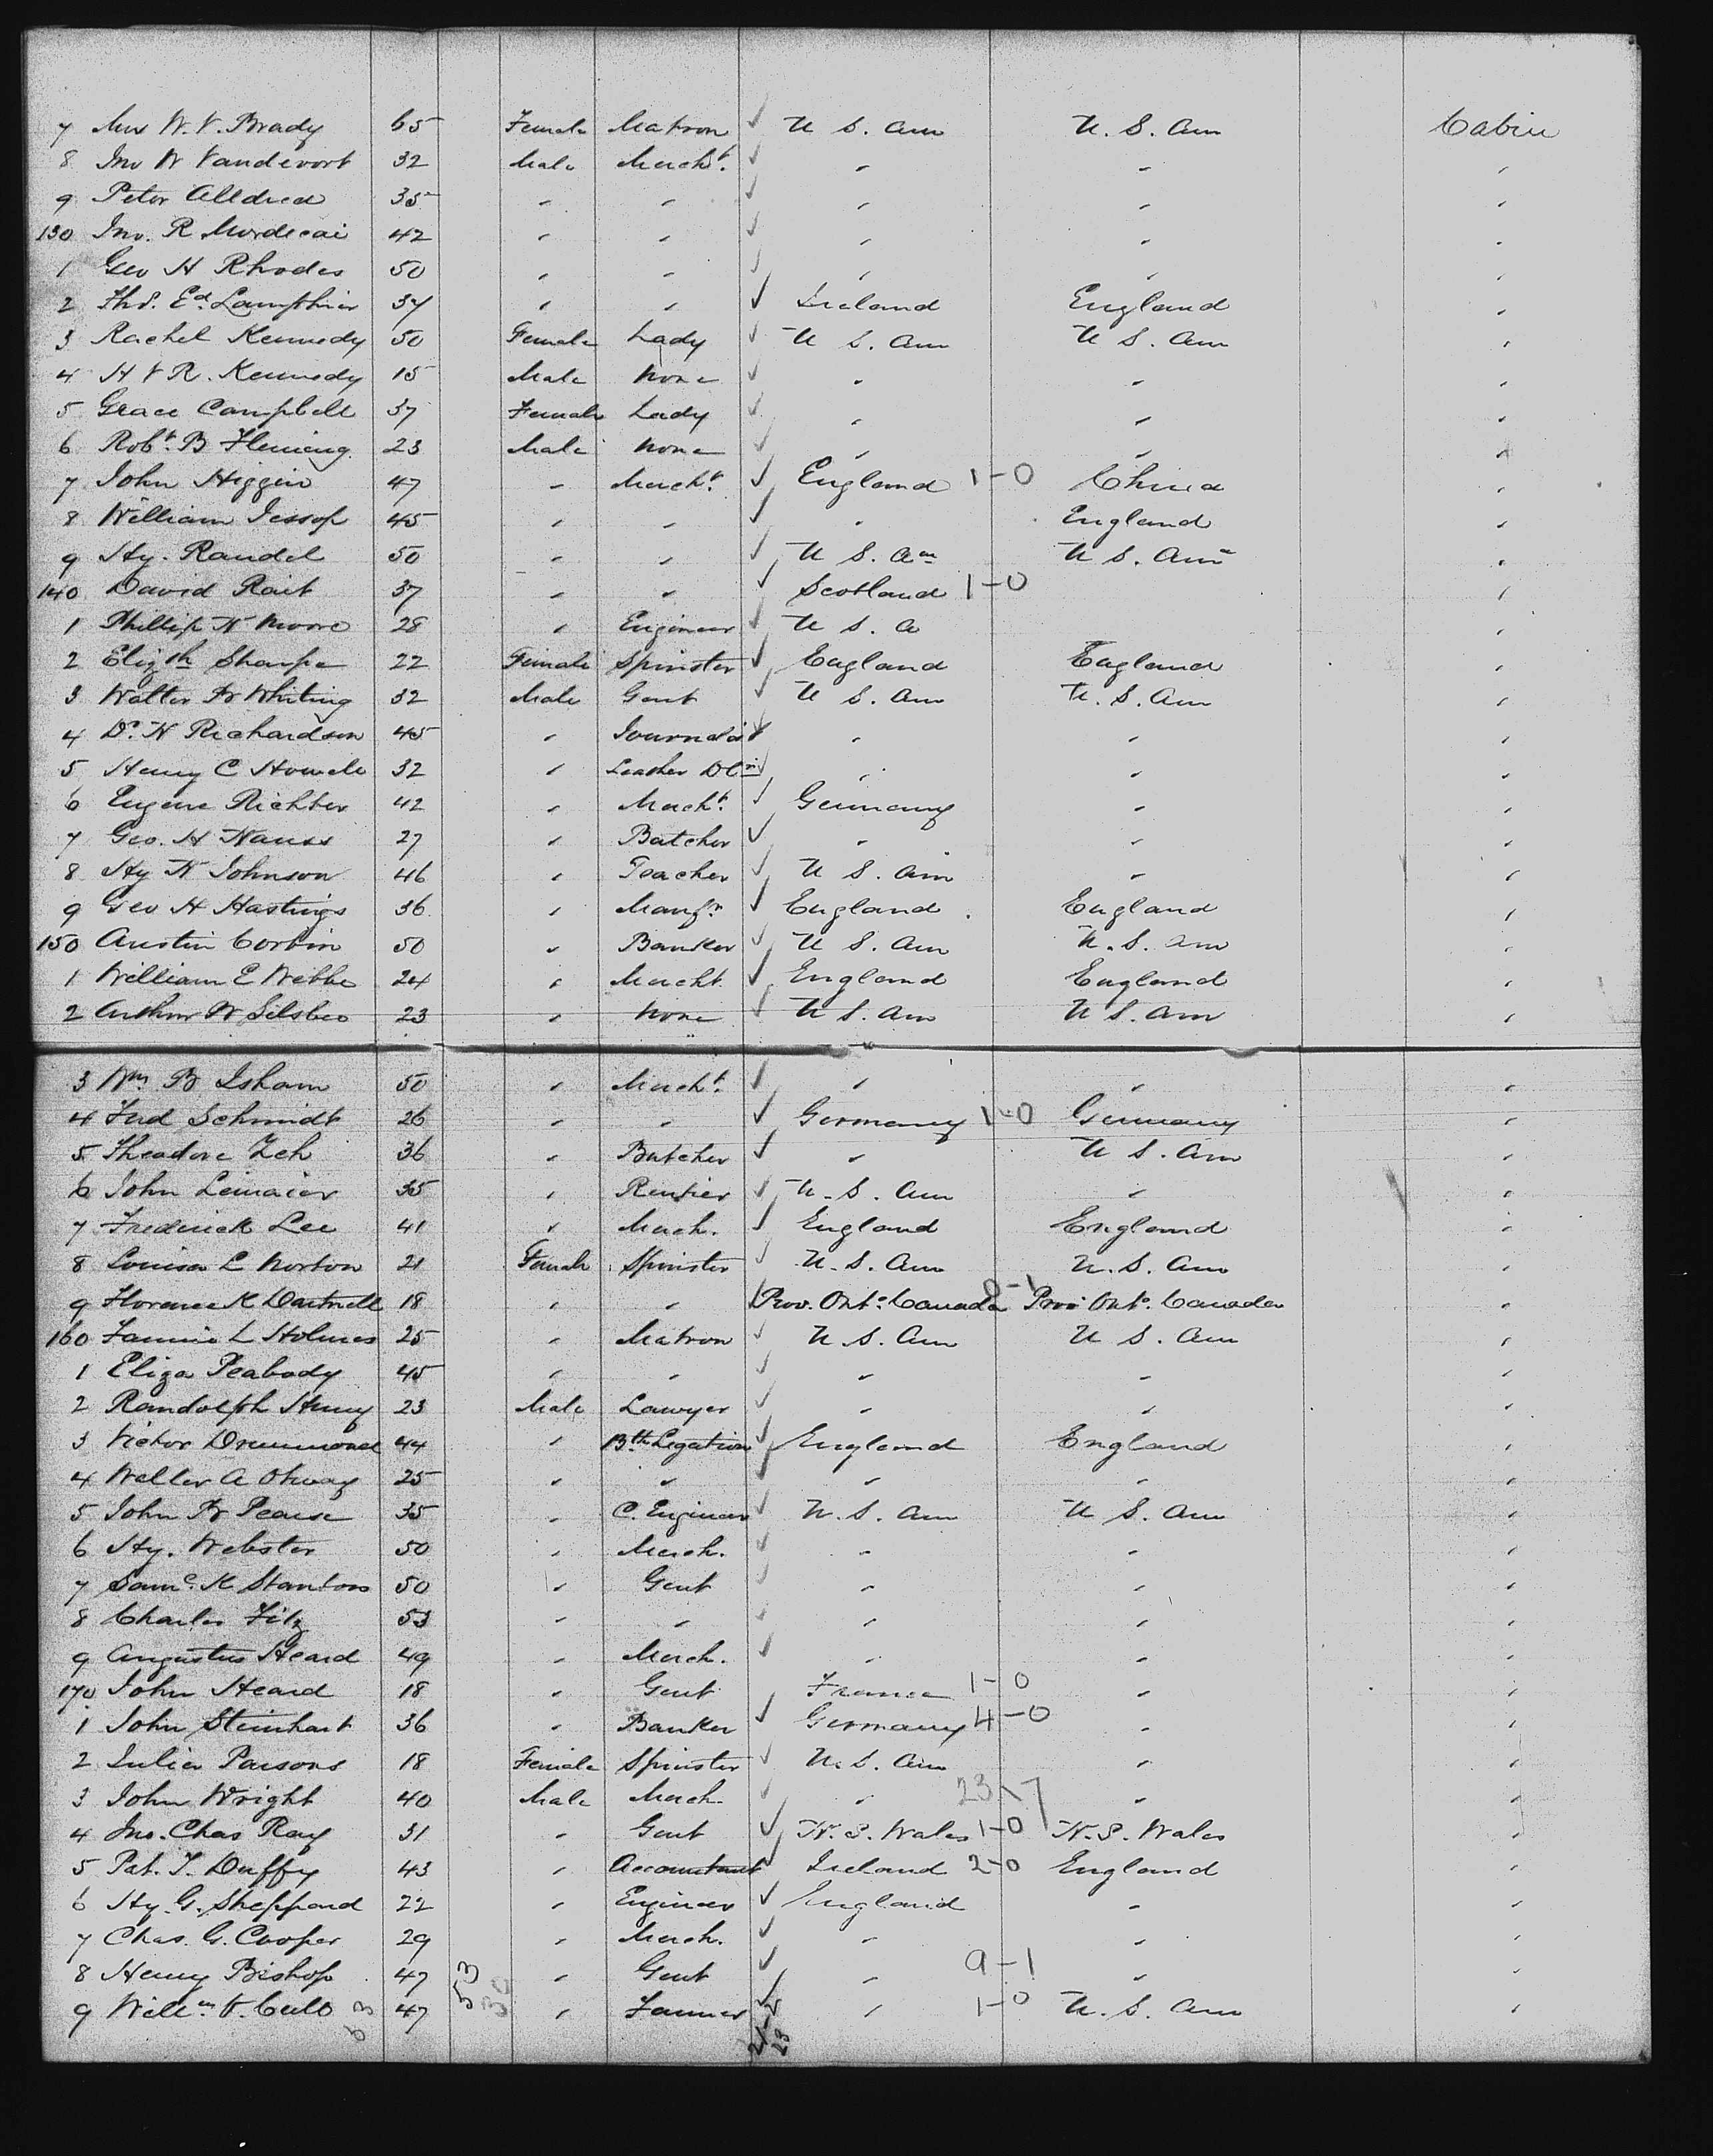 7 Mrs W. V. Brady 65 Female Matron ✓ U S. Am U. S. Am Cabin
8 Jno W Vandevort 32 Male Mercht. ✓ " " "
9 Peter Alldred 35 " " ✓ " " "
130 Jno. R Mordecai 42 " " ✓ " " "
1 Geo H Rhodes 50 " " ✓ " " "
2 Thos. Ed. Lamphier 37 " " ✓ Ireland England "
3 Rachel Kennedy 50 Female Lady ✓ U S. Am U S. Am "
4 H V R. Kennedy 15 Male None ✓ " " "
5 Grace Campbell 37 Female Lady ✓ " " "
6 Robt. B Fleming 23 Male None ✓ " " "
7 John Higgin 47 " Mercht. ✓ England 1-0 China "
8 William Jessop 45 " " ✓ " England "
9 Hy. Randel 50 " " ✓ U S. Am U S. Am "
140 David Rait 37 " " ✓ Scotland 1-0 "
1 Phillip N Moore 28 " Engineer ✓ U S. A "
2 Elizth Sharpe 22 Female Spinster ✓ England England "
3 Walter B Whiting 32 Male Gent ✓ U S. Am U. S. Am "
4 D. N Richardson 45 " Journalist ✓ " " "
5 Henry C Howell 32 " Leather ✓ " " "
6 Eugene Richter 42 " Mercht. ✓ Germany " "
7 Geo. H Nauss 27 " Butcher ✓ " " "
8 Hy N Johnson 46 " Teacher ✓ U S. Am " "
9 Geo H Hastings 36 " Manfr ✓ England England "
150 Austin Corbin 50 " Banker ✓ U S. Am U. S. Am "
1 William E Webbe 24 " Mercht ✓ England England "
2 Arthur W Silsbee 23 " None ✓ U S. Am U S. Am "
3 Wm B Isham 50 " Mercht. ✓ " " "
4 Fred Schmidt 26 " " ✓ Germany 1-0 Germany "
5 Theadore Zeh 36 " Butcher ✓ " U S. Am "
6 John Lemaier 35 " Rentier ✓ U. S. Am " "
7 Frederick Lee 41 " Merch. ✓ England England "
8 Louisa L Norton 21 Female Spinster ✓ U. S. Am U. S. Am "
9 Florence K Dartnell 18 " " Prov. Onto. Canada 0-1 Prov Onto. Canada "
160 Fannie L Holmes 25 " Matron ✓ U S. Am U S. Am "
1 Eliza Peabody 45 " " ✓ " " "
2 Randolph Henry 23 Male Lawyer ✓ " " "
3 Victor Drummond 44 " Bth Legation ✓ England England "
4 Weller A Otway 25 " " ✓ " " "
5 John B Pearse 35 " C. Engineer ✓ U. S. Am U S. Am "
6 Hy. Webster 50 " Merch. ✓ " " "
7 Saml. K Stanton 50 " Gent ✓ " " "
8 Charles Fitz 53 " " ✓ " " "
9 Augustus Heard 49 " Merch. ✓ " " "
170 John Heard 18 " Gent France 1-0 " "
1 John Steinhart 36 " Banker ✓ Germany 4-0 " "
2 Julia Parsons 18 Female Spinster ✓ U. S. Am " "
3 John Wright 40 Male Merch. ✓ " 23 17 " "
4 Jno. Chas Ray 31 " Gent ✓ N. S. Wales 1-0 N. S. Wales "
5 Pat. J. Duffy 43 " Accountant ✓ Ireland 2-0 England "
6 Hy. G. Sheppard 22 " Engineer ✓ England " "
7 Chas. G. Cooper 29 " Merch. ✓ " " "
8 Henry Bishop 47 53 30 " Gent ✓ " 9-1 " "
9 Willm V. 63 47 " Farmer ✓ " 1-0 U. S. Am "